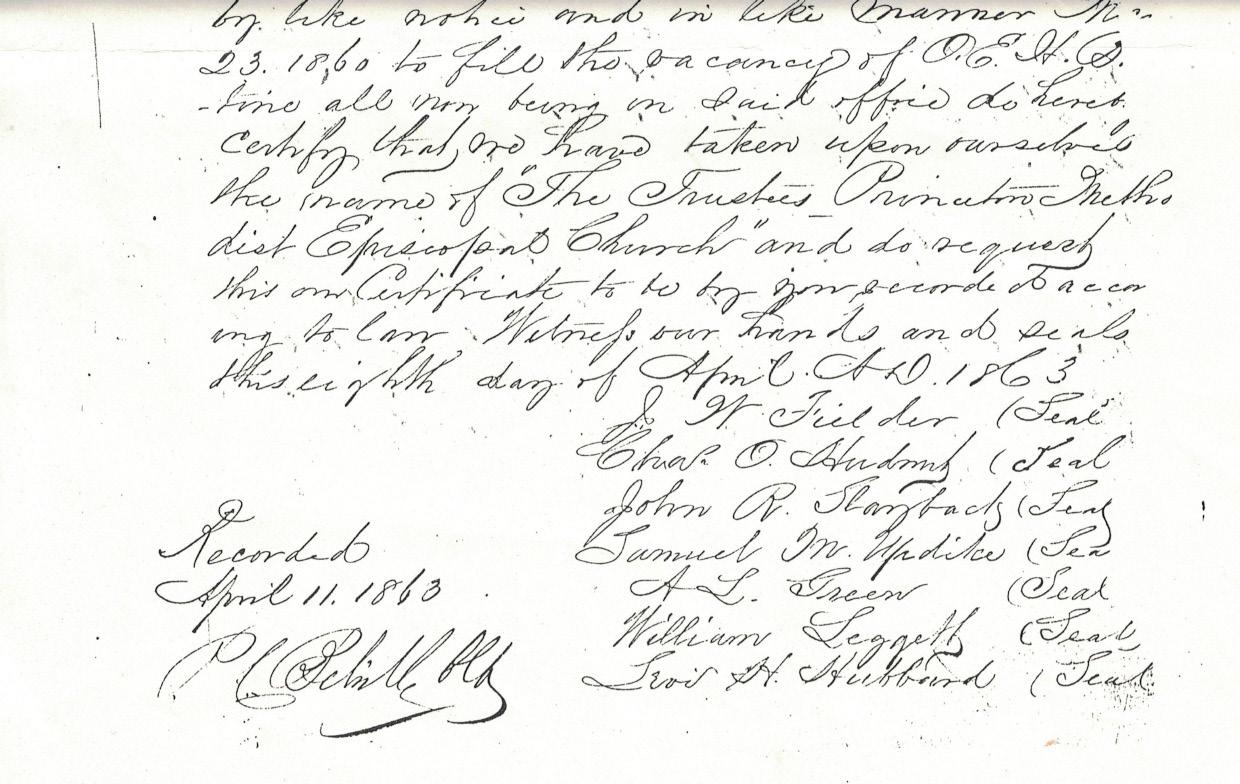 by like notice and in like manner
23. 1860 to fill the vacancy of O. E. H. S.
-tine all now being in said office do hereb
certify that we have taken upon ourselves
the name of "The Trustees Princeton Metho
dist Episcopal Church" and do request
this our Certificate to be by you recorded accor
ing to law Witness our hands and seals
this eighth day of April A.D. 1863
J. W. Fielder (Seal
Chas. O. Hudnut (Seal
John R. Slayback (Seal
Samuel M. Updike (Sea
A L. Green (Seal
William Leggett (Seal
Levi H. Hubbard (Seal
Recorded
April 11. 1863